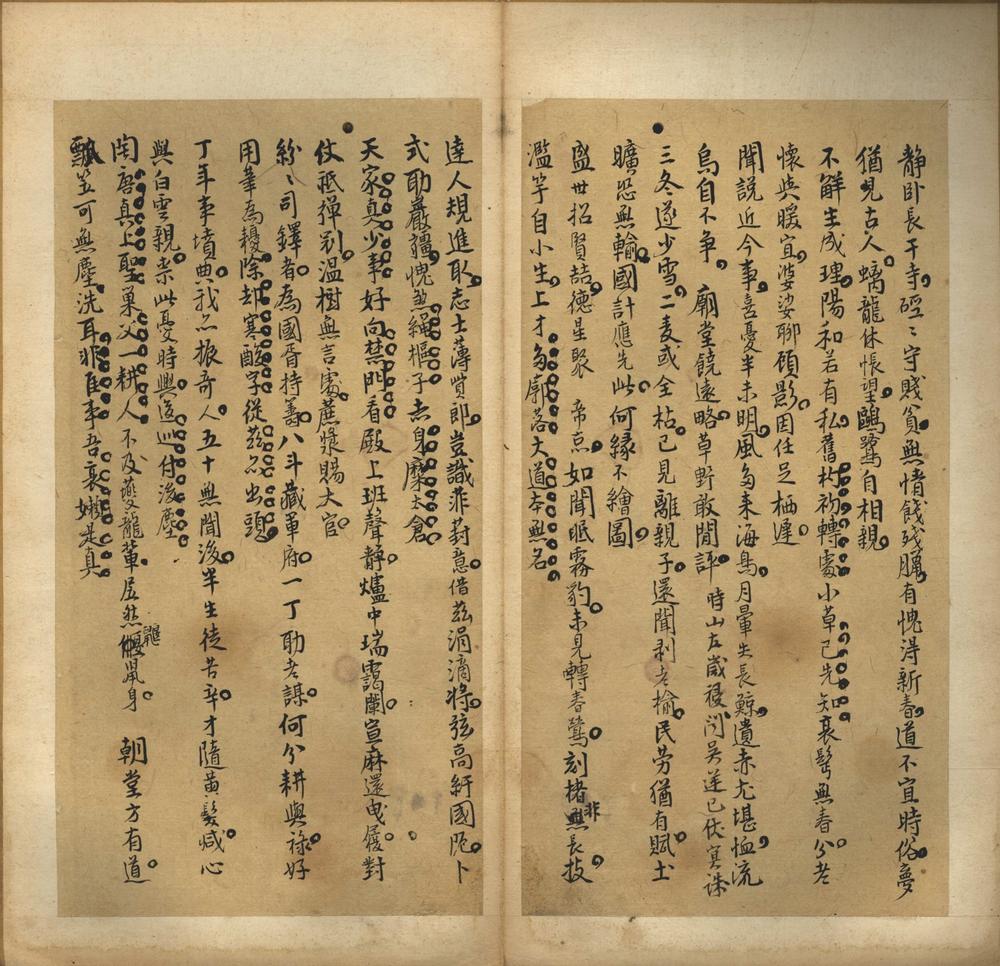 靜卧長干寺硜〻守賤貧無情餞殘臘有愧淂新春道不宜時俗夢
猶見古人螭龍休悵望鷗鷺自相親
不解生成理陽和若有私舊杓初轉處小草已先知衰髩無春分老
懷與暖宜婆娑聊顧影因任足栖遲
聞說近今事喜憂半未明風多来海鳥月暈生長鯨遺赤尤堪恤流
烏自不争 廟堂饒遠略草野敢閒評 時山左歲祲閃吴逆已伏冥誅
三冬遂少雪二麦或全枯已見離親子還聞剥老榆民劳猶有賦土
曠恐無輸國計應先此何緣不繪圖
盛世招賢喆德星聚 帝京如聞眠霧豹未見轉春鶯刻楮非長技
濫竽自小生上才多廓落大道本無名
達人規進取志士薄貲郎豈識非葑意借茲涓滴將弦高紓國阨卜
式助嚴疆愧煞繩樞子赤身糜太倉
天家真少事好向禁門看殿上班聲靜爐中瑞靄闌宣麻還曳履對
仗祗彈冠溫樹無言處蔗漿賜大官
紛〻司鐸者為國胥持籌八斗藏軍府一丁助老謀何分耕與祿好
用筆為耰除却寒酸字從茲不出頭
丁年事墳典我亦振奇人五十無聞後半生徒苦辛才隨黄髮減心
與白雲親柰此憂時興逡巡付後塵
陶唐真上聖巢父一耕人不及夔龍輩居然鼹鼠身 朝堂方有道
瓢笠可無塵洗耳非佳事吾衰嬾是真